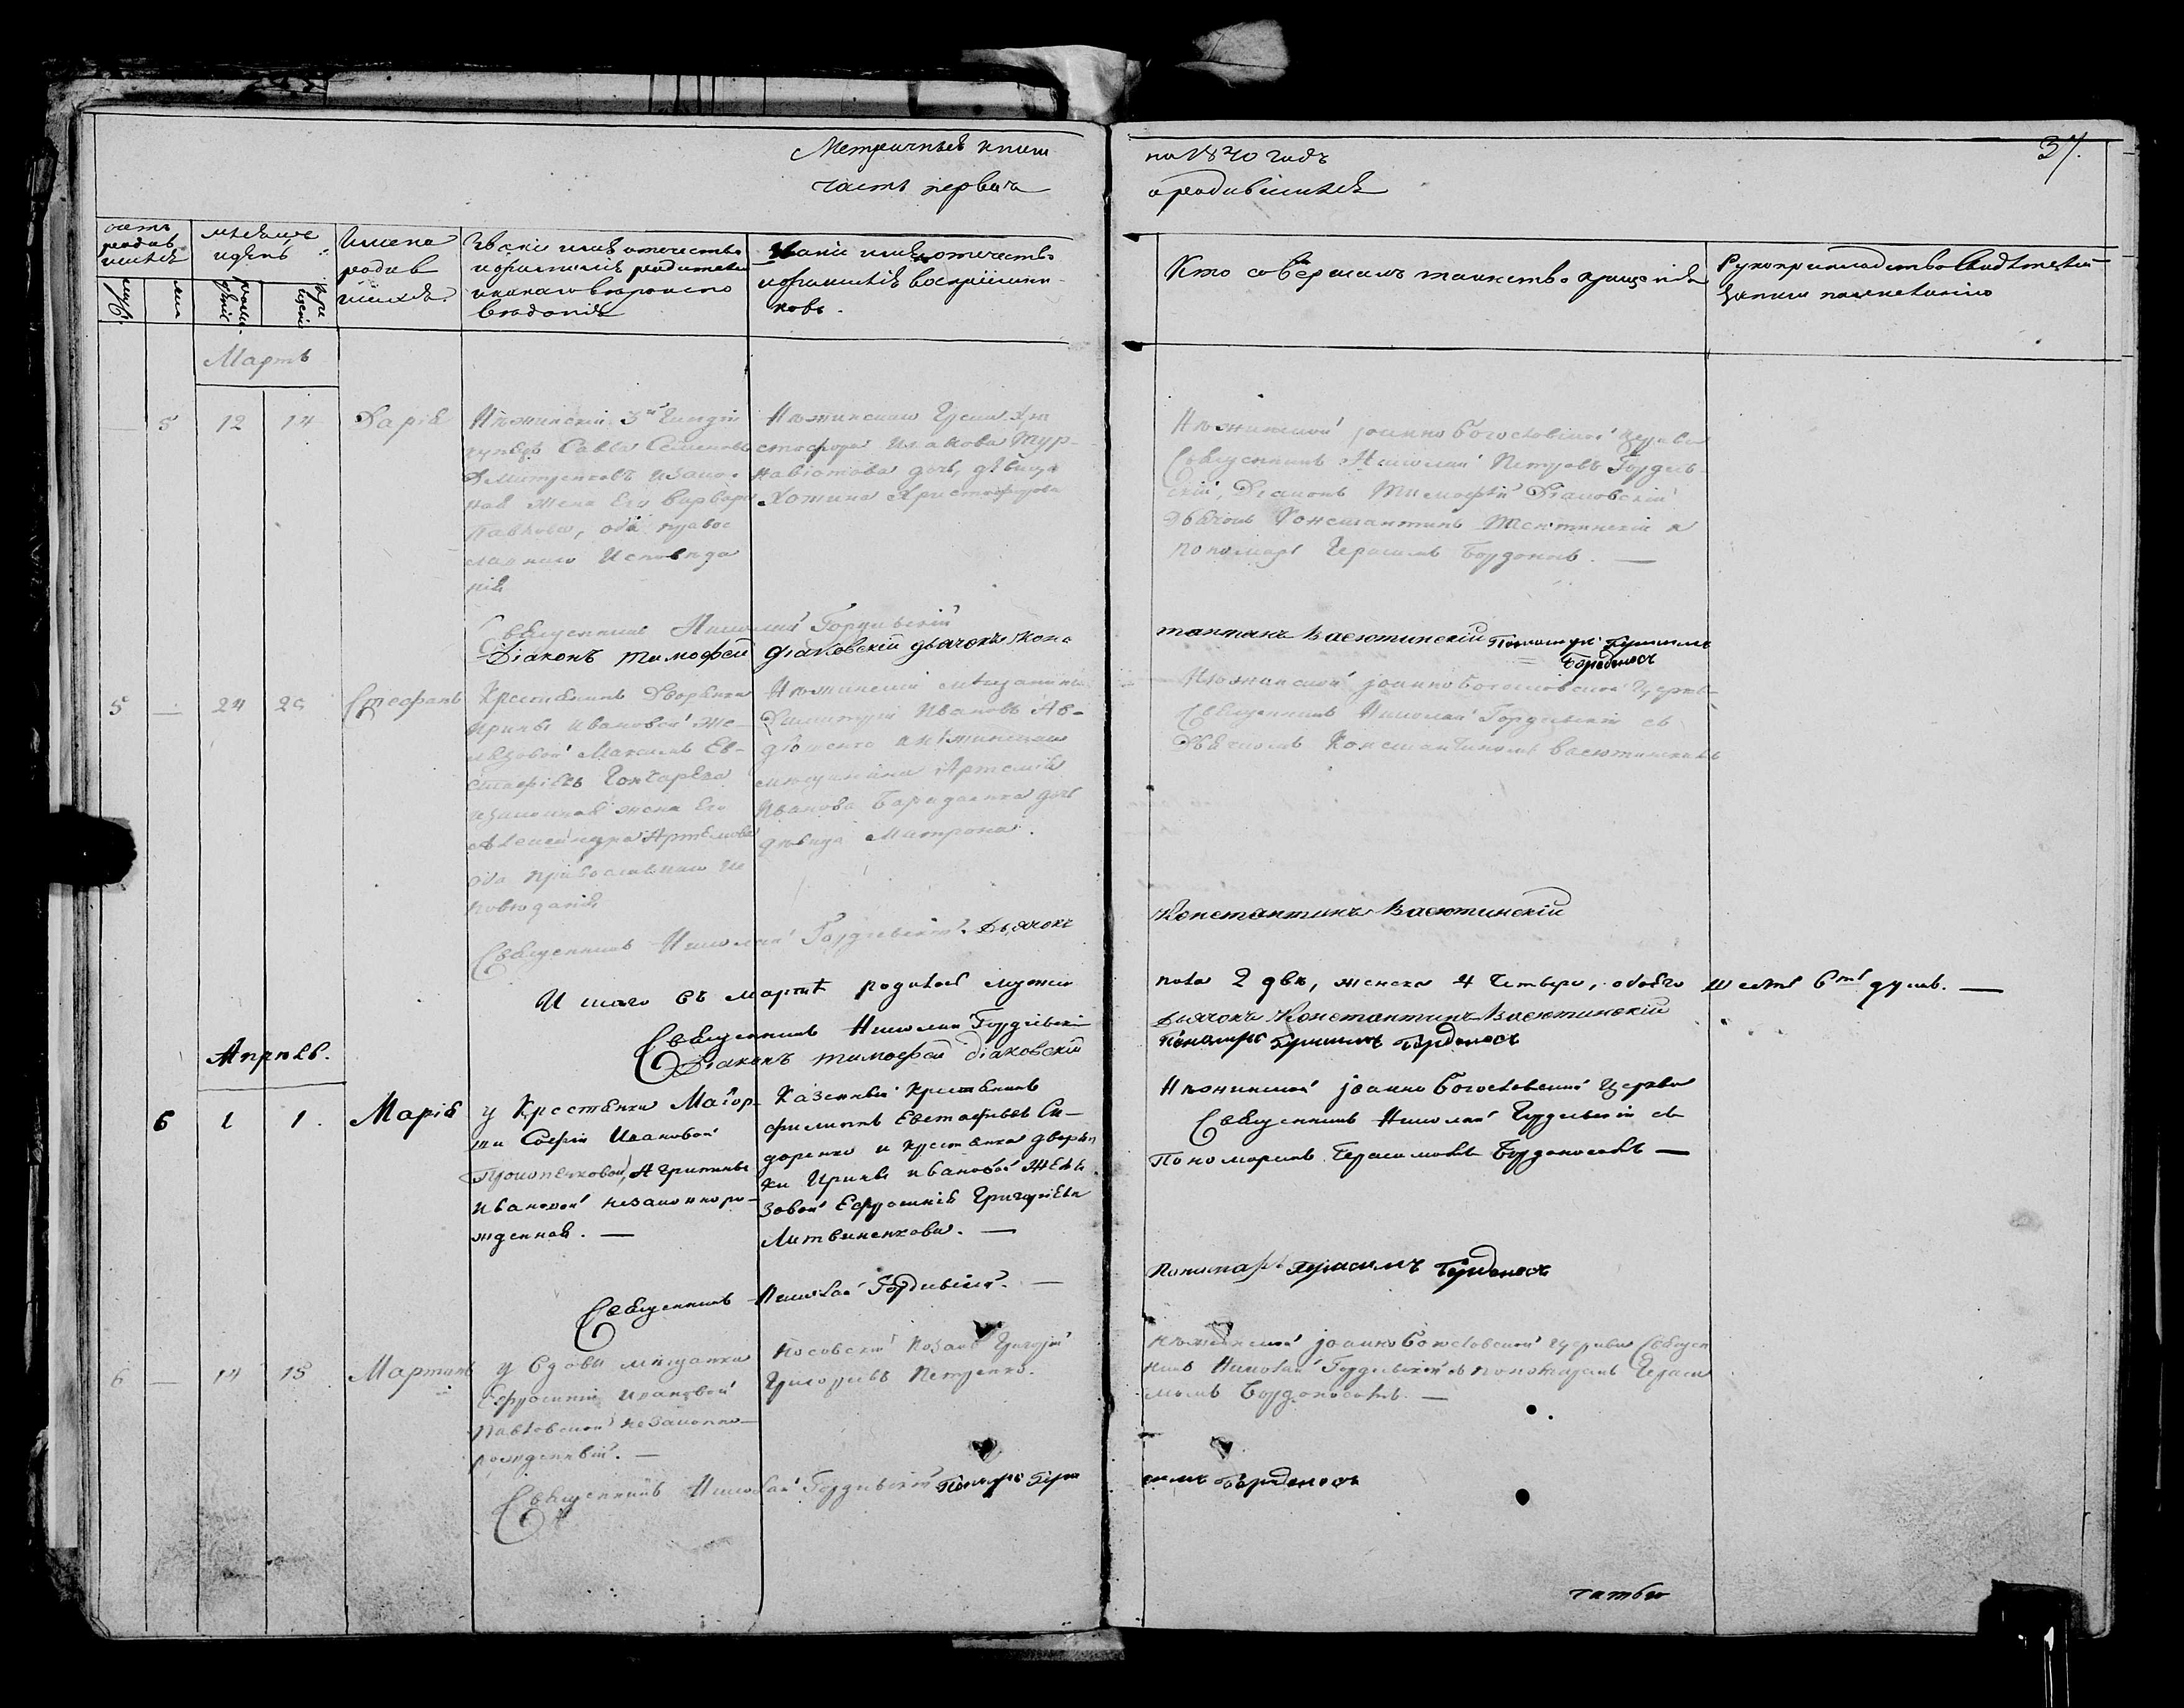 Метричныя книги
часть первая
на 1840 годъ
о родившихся
37.
счетъ
родив
шихся
мѣсяцъ
и день
Имена
родив
шихся
Званіе имя отечество
и фамилія родителей
и какого вѣроиспо
вѣданія
Званіе имя отечество
и фамилія воспріемни-
ковъ.
Кто совершалъ таинство крещенія
Рукоприкладство свидѣтелей
записи по желанію
муж.
жен
рож
денія
кре
щенія
Мартъ
5
12
14
Дарія
Нѣжинскій 3й Гильдіи
купецъ Савва Семеновъ
Дмитренковъ и закон
ная жена Его Варвара
Павлова, оба правос
лавнаго Исповѣда
нія
Нѣжинскаго Грека Хри
стофора Исакова
дочь, дѣвица
Христофорова
Нѣжинской Іоанно Богословской Церкви
Священникъ Николай Петровъ Гордіев-
скій, Діаконъ Тимофѣй Діаковскій
Дьячокъ Константинъ Васютинскій и
Пономарь Герасимъ Бордонос.
Священникъ Николай Гордіевскій
Діаконъ Тимофей Діаковскій дьячокъ Конс
тантинъ Васютинскій Пономарь Герасимъ
Бордоносъ
5
24
25
Стефанъ
Крестьянинъ Дворянки
Ирины Ивановой Же-
лѣзовой Максимъ Ев-
стафіевъ Гончаренко
и законная жена Его
Александра Артемова
оба православнаго Ис
повѣданія
Нѣжинскій мѣщанинъ
Димитрій Ивановъ Ав-
дѣенко и нѣжинскаго
мѣщанина Артемія
Иванова дочь
дѣвица Матрона.
Нѣжинской Іоанно Богословской Церкви
Священникъ Николай Гордіевскій съ
Дьячкомъ Константиномъ Васютинскимъ
Священникъ Николай Гордіевскій. Дьячокъ
Константинъ Васютинскій
Итого въ мартѣ родилось мужес
пола 2 два, женска 4 четыре, обоего шесть 6ть душъ.
Священникъ Николай Гордіевскій
Дьячокъ Константинъ Васютинскій
Діаконъ Тимофей Діаковскій
Пономарь Герасимъ Бордоносъ
Апрѣль.
6
1
1.
Марія
у Крестьянки Маіор-
ши Софіи Ивановой
Прокопенковой, Агрипины
Ивановой незаконноро-
жденная.
Казенный Крестьянинъ
Филиппъ Евстафьевъ Си-
доренко и крестьянка дворян
ки Ирины Ивановой Желѣ
зовой Ефросинія Григоріева
Литвиненкова.
Нѣжинской Іоанно Богословской Церкви
Священникъ Николай Гордіевскій съ
Пономаремъ Герасимомъ Бордоносомъ
Священникъ Николай Гордіевскій.
Пономарь Герасимъ Бордоносъ
6
14
15
Мартинъ
у Вдовы мѣщанки
Ефросиніи Ивановой
Павловской незаконно-
рожденный.
Носовскій Козакъ Григорій
Григорьевъ Петренко.
Нѣжинской Іоанно Богословской Церкви Священ
никъ Николай Гордіевскій съ пономаремъ Гераси
момъ Бордоносомъ.
Священникъ Николай Гордіевскій Пономарь Гера
симъ Бордоносъ